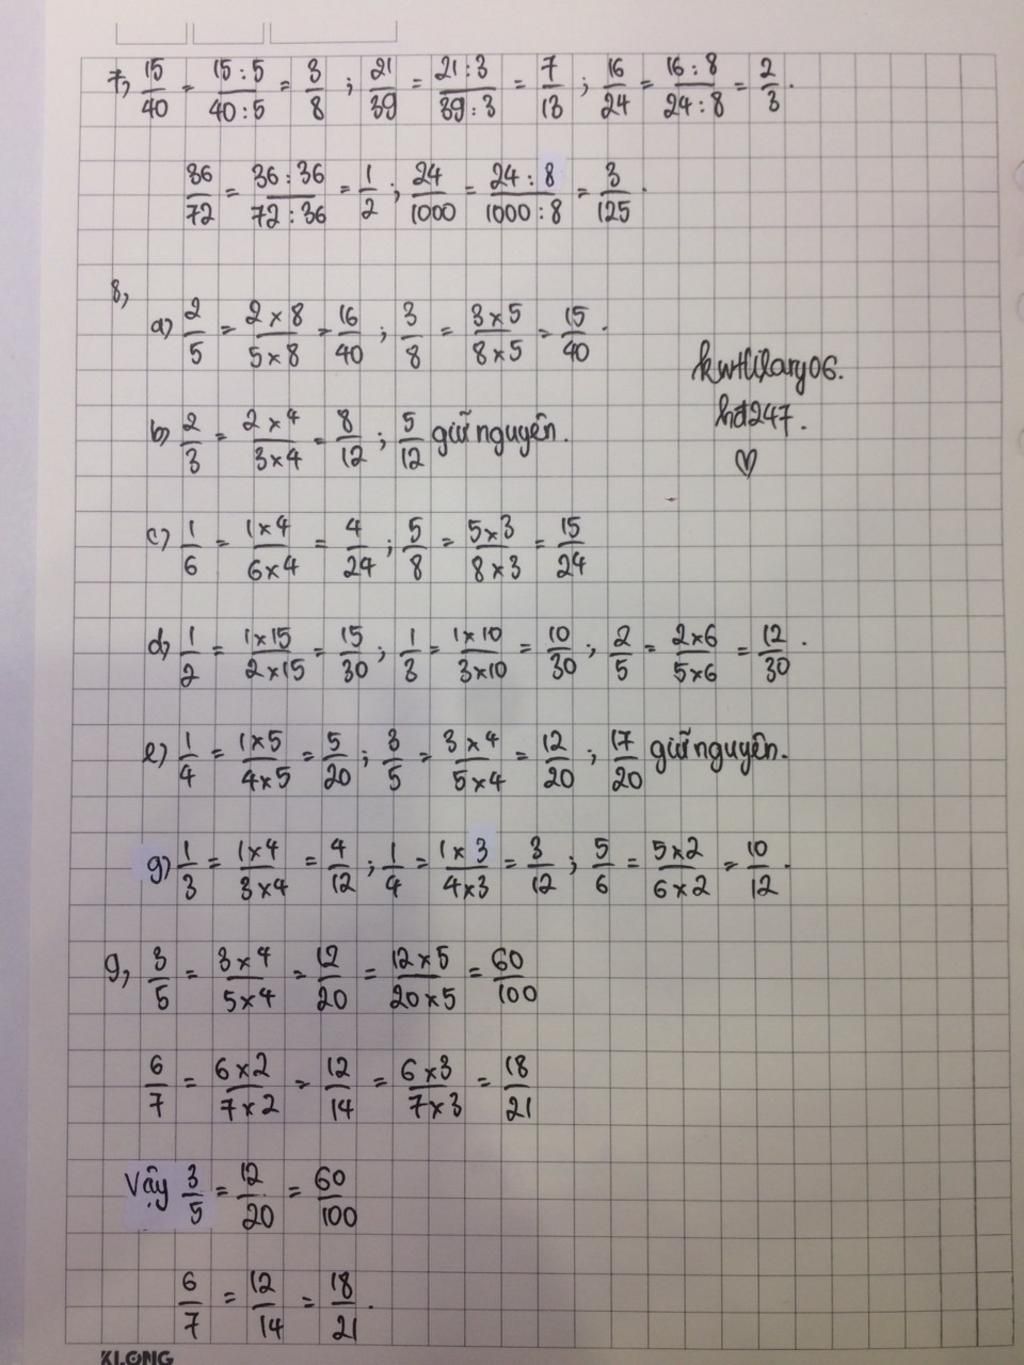 7, 15/40 = 15:5/40:5 = 3/8 ; 21/39 = 21:3/39:3 = 7/13 ; 16/24 = 16:8/24:8 = 2/3.
36/72 = 36:36/72:36 = 1/2 ; 24/1000 = 24:8/1000:8 = 3/125.
8,
a) 2/5 = 2×8/5×8 = 16/40 ; 3/8 = 3×5/8×5 = 15/40.
hđ247.
b) 2/3 = 2×4/3×4 = 8/12 ; 5/12 giữ nguyên.
c) 1/6 = 1×4/6×4 = 4/24 ; 5/8 = 5×3/8×3 = 15/24
d) 1/2 = 1×15/2×15 = 15/30 ; 1/3 = 1×10/3×10 = 10/30 ; 2/5 = 2×6/5×6 = 12/30.
e) 1/4 = 1×5/4×5 = 5/20 ; 3/5 = 3×4/5×4 = 12/20 ; 17/20 giữ nguyên.
g) 1/3 = 1×4/3×4 = 4/12 ; 1/4 = 1×3/4×3 = 3/12 ; 5/6 = 5×2/6×2 = 10/12.
9, 3/5 = 3×4/5×4 = 12/20 = 12×5/20×5 = 60/100
6/7 = 6×2/7×2 = 12/14 = 6×3/7×3 = 18/21
Vậy 3/5 = 12/20 = 60/100
6/7 = 12/14 = 18/21.
KLONG